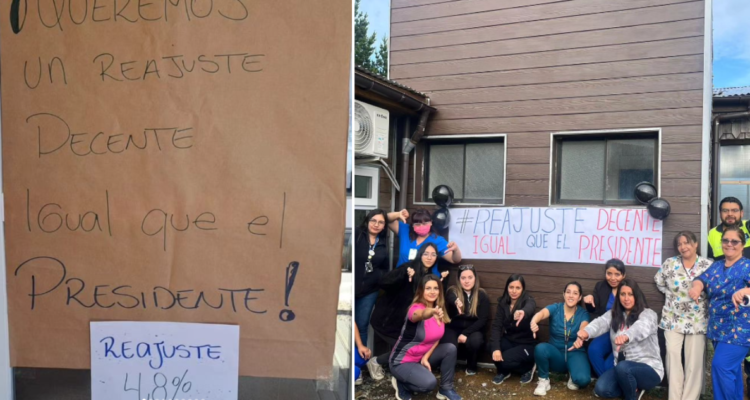 ¡QUEREMOS
UN REAJUSTE
DECENTE
Igual que el
PRESIDENTE!
REAJUSTE
48%
#REAJUSTE DECENTE
IGUAL QUE EL PRESIDENTE